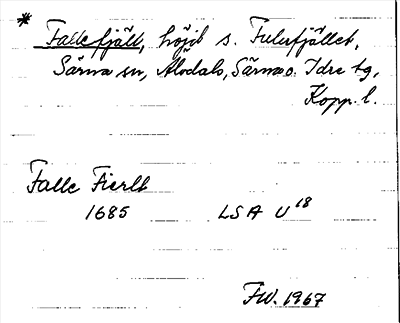 * Fallefjäll, höjd s. Fulufjället,
Särna sn, Älvdals, Särna o. Idre tg,
Kopp. l.
Falle Fierlt
1685 LSA U 18
FW. 1967